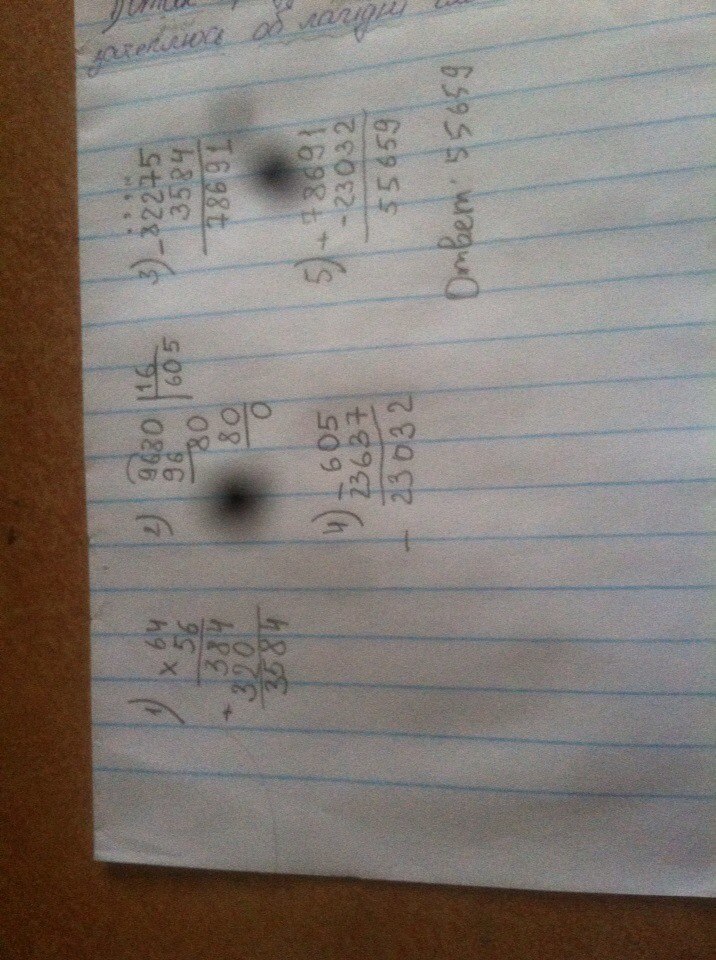 об лагідні
1) × 64
56
384
+ 320
3584
2) 9680 | 16
96 605
80
80
0
3) - 82275
3584
78691
4) - 605
23637
- 23032
5) + 78691
- 23032
55659
Ответ: 55659